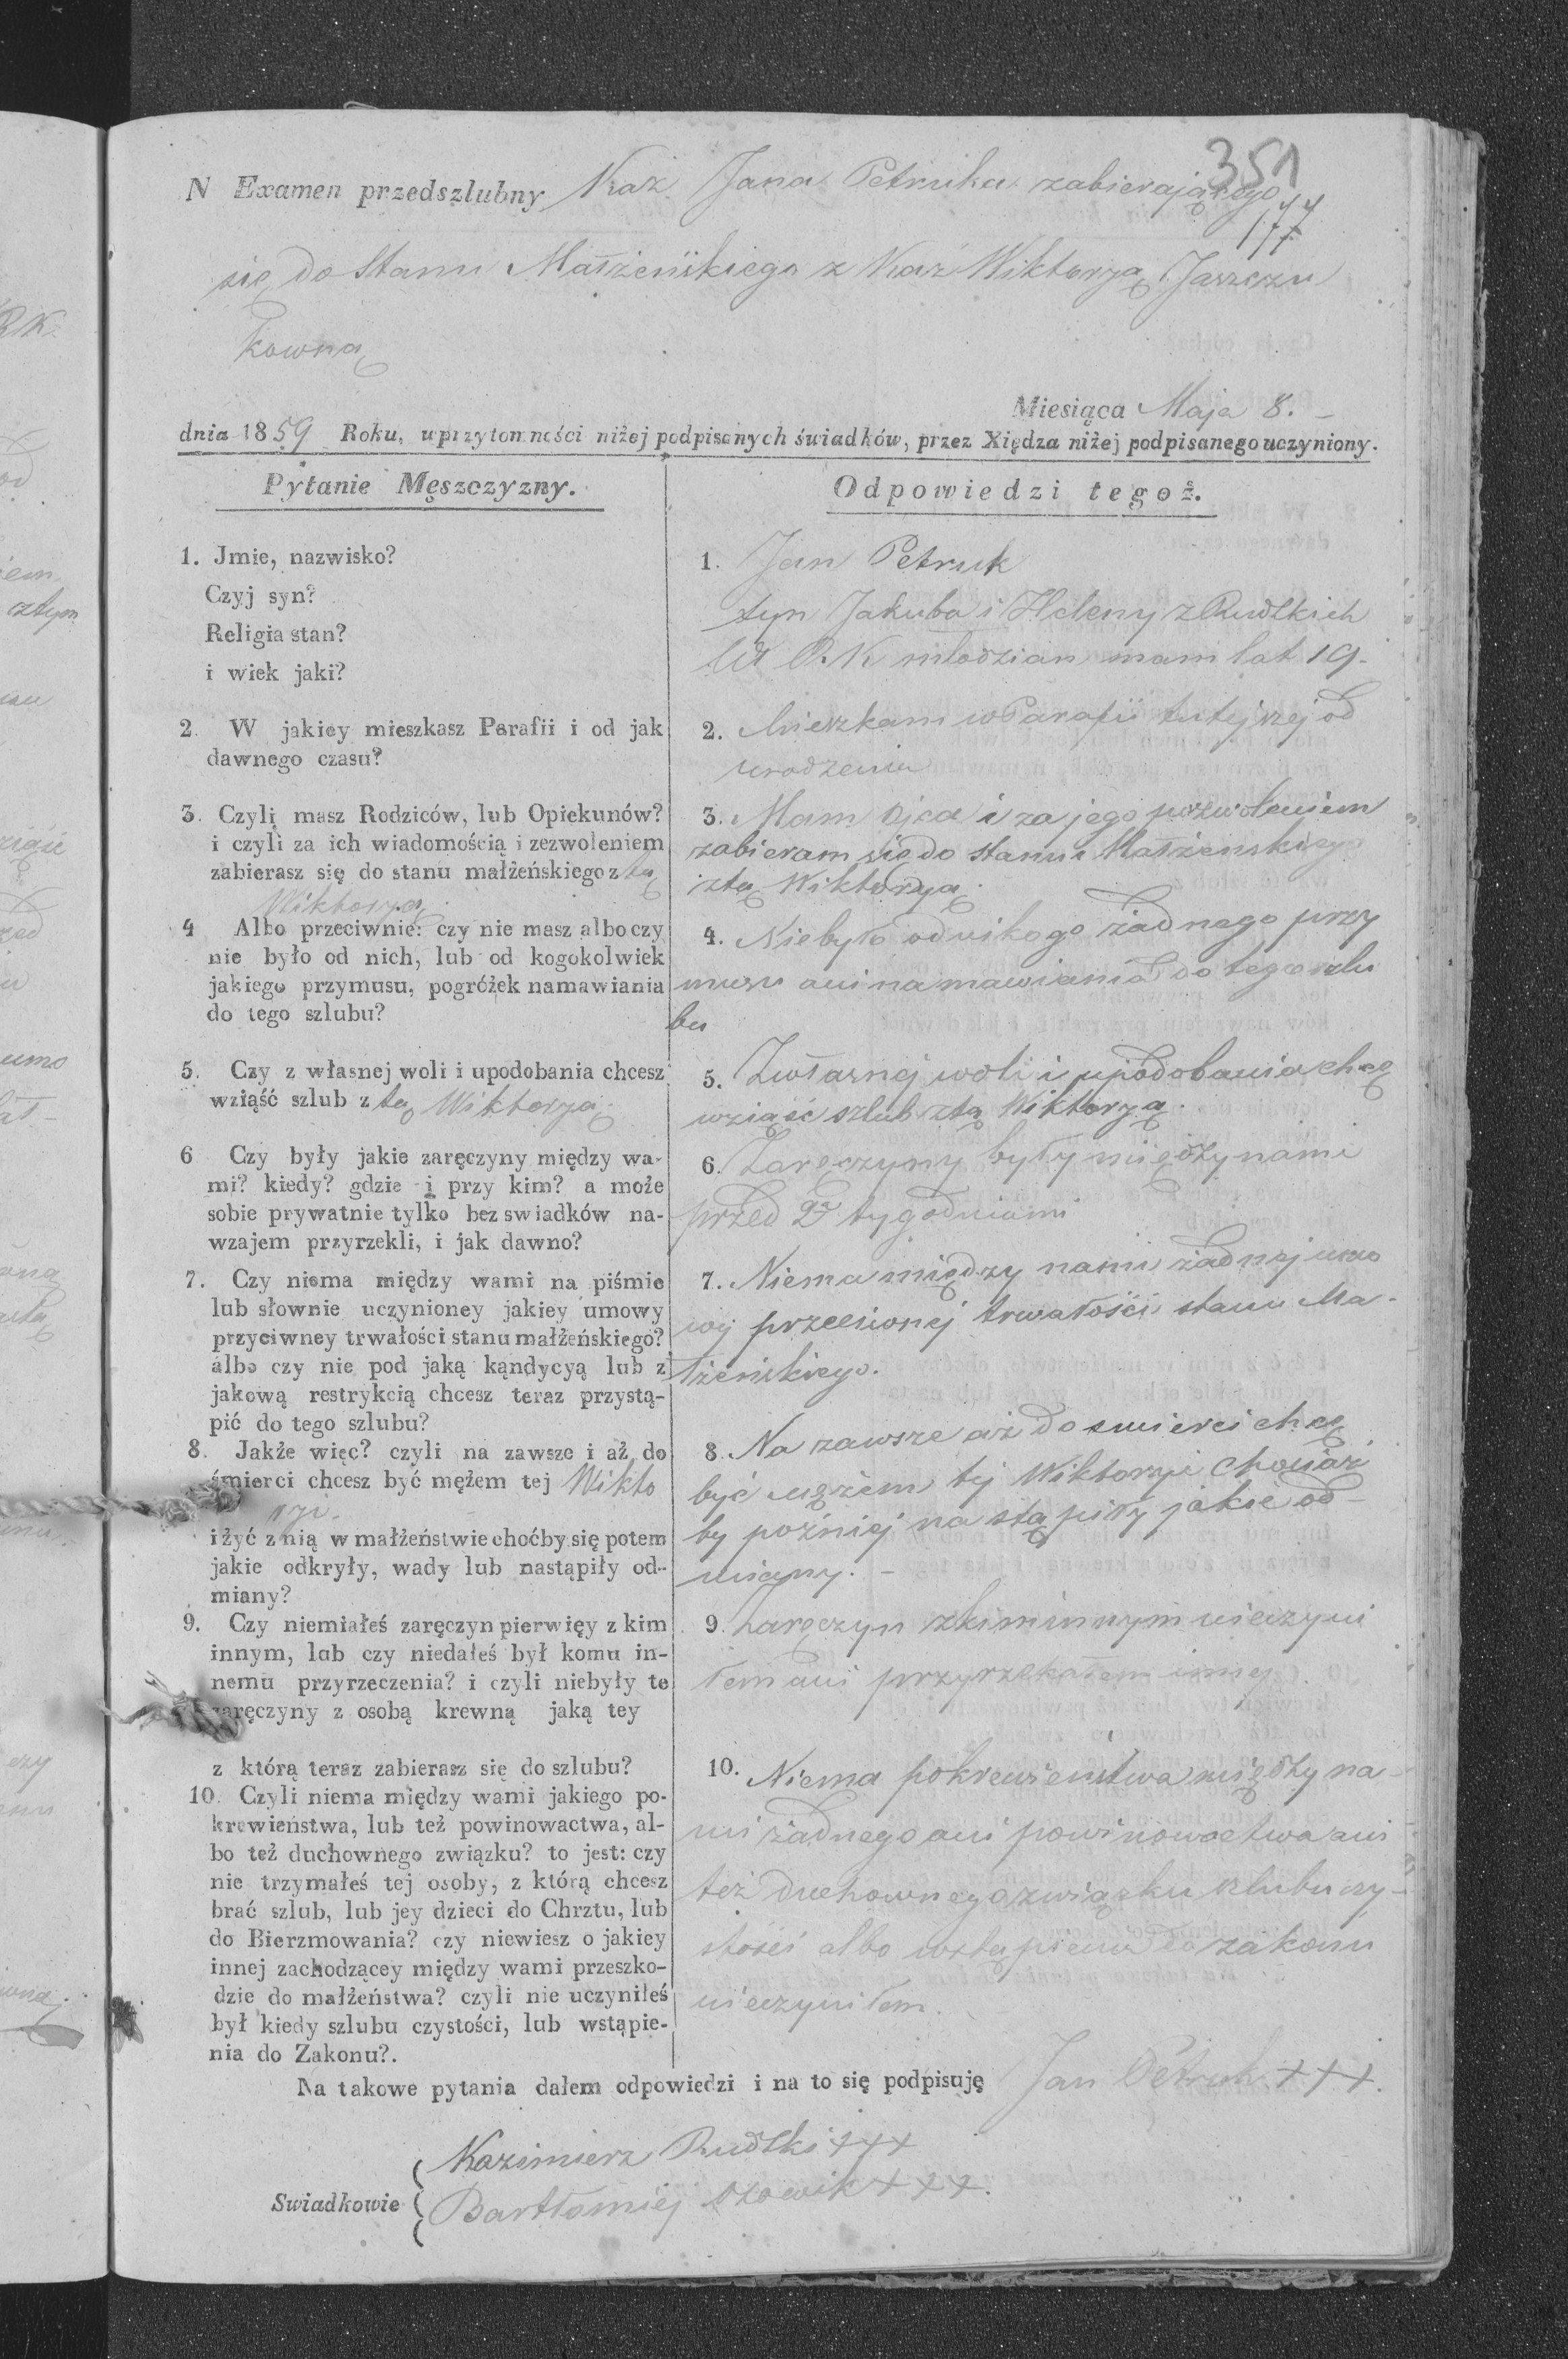 351
N Examen przedszlubny Kaz Jana Petruka zabierającego
177
się do Stanu Małżeńskiego z Kaz Wiktoryą Jaszczu
kowną
Miesiąca Maja 8. –
dnia 1859 Roku, uprzytomności niżej podpisanych świadków, przez Xiędza niżej podpisanego uczyniony.
Pytanie Męszczyzny.
1. Jmie, nazwisko?
Czyj syn?
Religia stan?
i wiek jaki?
2. W jakiey mieszkasz Parafii i od jak
dawnego czasu?
3. Czyli masz Rodziców, lub Opiekunów?
i czyli za ich wiadomością i zezwoleniem
zabierasz się do stanu małżeńskiego z tą
Wiktoryą
4 Albo przeciwnie: czy nie masz albo czy
nie było od nich, lub od kogokolwiek
jakiego przymusu, pogróżek namawiania
do tego szlubu?
5. Czy z własnej woli i upodobania chcesz
wziąść szlub z tą Wiktoryą
6 Czy były jakie zaręczyny między wa-
mi? kiedy? gdzie i przy kim? a może
sobie prywatnie tylko bez swiadków na-
wzajem przyrzekli, i jak dawno?
7. Czy niema między wami na piśmie
lub słownie uczynioney jakiey umowy
przyciwney trwałości stanu małżeńskiego?
albo czy nie pod jaką kąndycyą lub z
jakową restrykcią chcesz teraz przystą-
pić do tego szlubu?
8. Jakże więc? czyli na zawsze i aż do
śmierci chcesz być mężem tej Wikto
ryi.
i żyć z nią w małżeństwie choćby się potem
jakie odkryły, wady lub nastąpiły od-
miany?
9. Czy niemiałeś zaręczyn pierwięy z kim
innym, lub czy niedałeś był komu in-
nemu przyrzeczenia? i czyli niebyły te
zaręczyny z osobą krewną jaką tey
z którą teraz zabierasz się do szlubu?
10. Czyli niema między wami jakiego po-
krewieństwa, lub też powinowactwa, al-
bo też duchownego związku? to jest: czy
nie trzymałeś tej osoby, z którą chcesz
brać szlub, lub jey dzieci do Chrztu, lub
do Bierzmowania? czy niewiesz o jakiey
innej zachodzącey między wami przeszko-
dzie do małżeństwa? czyli nie uczyniłeś
był kiedy szlubu czystości, lub wstąpie-
nia do Zakonu?.
Odpowiedzi tegoż.
1. Jan Petruk
syn Jakuba i Heleny z Rudzkich
R.K młodzian mam lat 19.
2. Mieszkam w Parafii tutejszej od
urodzenia
3. Mam Ojca i za jego pozwoleniem
zabieram się do stanu Małżenskiego
z tą Wiktoryą.
4. Niebyło od nikogo żadnego przy
musu ani namawiania do tego szlu
bu
5. Zwłasnej woli i upodobania chcę
wziąść szlub z tą Wiktoryą.
6. Zaręczyny były między nami
przed 2 tygodniami
7. Niema między nami żadnej umo
wy przeciwnej trwałości stanu Ma-
łżeńskiego.
8. Na zawsze aż do smierci chcę
być mężem tej Wiktoryi chociaż
by poźniej nastąpiły jakie od-
miany. –
9. Zaręczyn z kim innym nieczyni
łem ani przyrzekałem innej.
10. Niema pokrewieństwa między na-
mi żadnego ani powinowactwa ani
też duchownego związku szlubu czy-
stości albo wstąpienia do zakonu
nieczyniłem.
Na takowe pytania dałem odpowiedzi i na to się podpisuję Jan Petruk +++.
Swiadkowie
Kazimierz Rudzki +++
Bartłomiej +++.